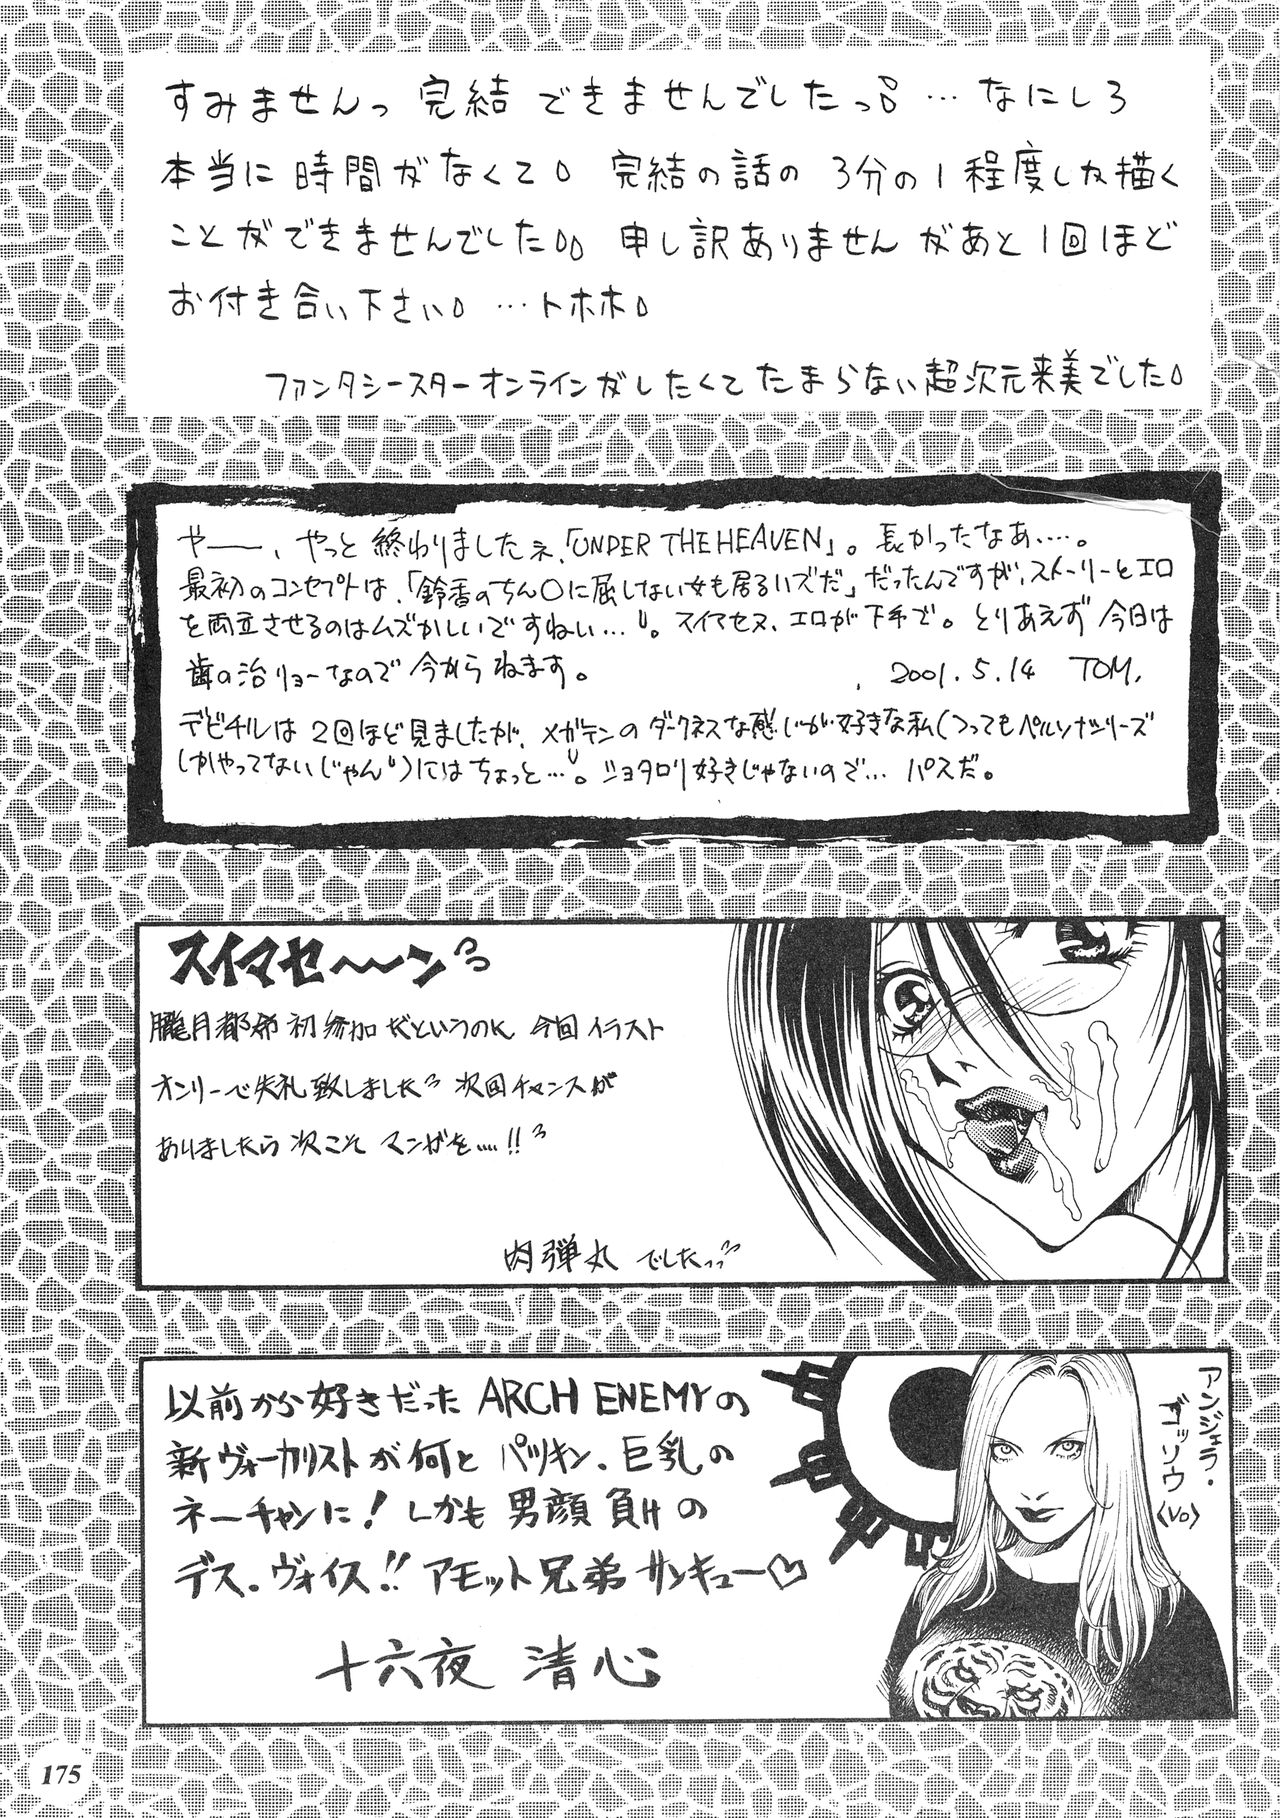 すみませんっ 完結 できませんでしたっ … なにしろ
本当に 時間がなくて。 完結の話の 3分の1程度しか描く
ことができませんでした。。 申し訳ありませんが あと1回ほど
お付き合い下さい。 … トホホ。
ファンタシースターオンラインがしたくてたまらない超次元来美でした。
やー、やっと終わりましたネ、「UNDER THE HEAVEN」。長かったなあ……。
最初のコンセプトは、「鈴香のちん〇に屈しない女も居るハズだ」だったんですが、ストーリーとエロ
を両立させるのはムズかしいですねい…。スイマセヌ、エロが下手で。とりあえず今日は
歯の治リョーなので今からねます。
2001.5.14 TOM.
デビチルは2回ほど見ましたが、メガテンのダークネスな感じが好きな私(つってもペルソナシリーズ
しかやってないじゃん)にはちょっと…。ショタロリ好きじゃないので… パスだ。
スイマセ〜〜ンっ
朧月都希初参加だというのに 今回イラスト
オンリーで失礼致しましたっ 次回チャンスが
ありましたら次こそ マンガを……!!
肉弾丸 でしたっっ
以前から好きだった ARCH ENEMYの
新ヴォーカリストが何と パツキン、巨乳の
ネーチャンに! しかも 男顔負けの
デス・ヴォイス!! アモット兄弟サンキュー♡
十六夜 清心
アンジェラ・
ゴッソウ
〈VO〉
175